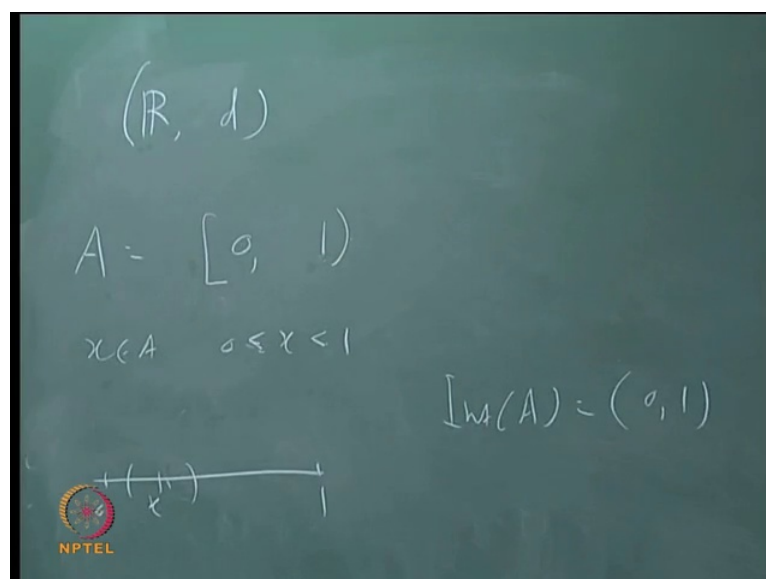 (ℝ, d)
A = [0, 1)
x ∈ A 0 ≤ x < 1
Int(A) = (0, 1)
x 1
NPTEL